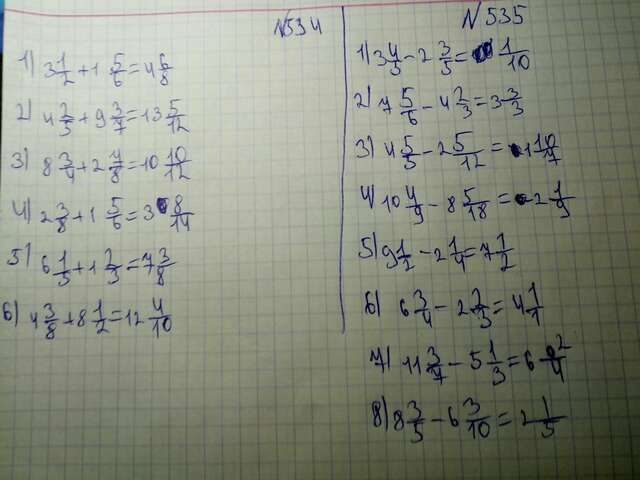 N534
1) 3 1/2 + 1 5/6 = 4 6/8
2) 4 2/5 + 9 3/7 = 13 5/12
3) 8 3/4 + 2 7/8 = 10 10/12
4) 2 3/8 + 1 5/6 = 3 8/14
5) 6 1/5 + 1 2/3 = 7 3/8
6) 4 3/8 + 8 1/2 = 12 4/10
N535
1) 3 4/5 - 2 3/5 = 1/10
2) 7 5/6 - 4 2/3 = 3 3/3
3) 4 5/5 - 2 5/12 = 1 10/7
4) 10 4/9 - 8 5/18 = 2 1/9
5) 9 1/2 - 2 1/4 = 7 1/2
6) 6 3/4 - 2 2/5 = 4 1/1
7) 11 3/7 - 5 1/3 = 6 2/4
8) 8 3/5 - 6 3/10 = 2 1/5